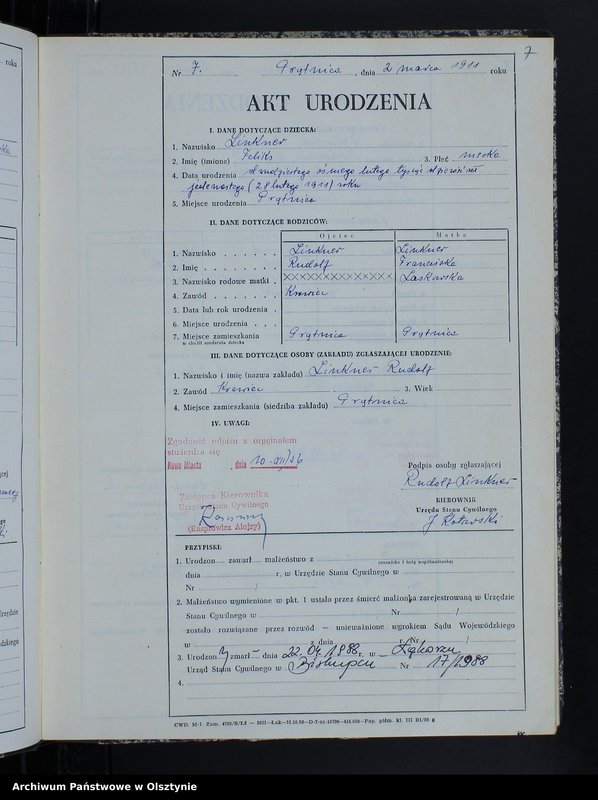 7
Nr 7. Prątnica, dnia 2 marca 1911 roku
AKT URODZENIA
I. DANE DOTYCZĄCE DZIECKA:
1. Nazwisko Linkner
2. Imię (imiona) Feliks 3. Płeć męska
4. Data urodzenia dwudziestego ósmego lutego tysiąc dziewięćset
jedenastego (28 lutego 1911) roku
5. Miejsce urodzenia Prątnica
II. DANE DOTYCZĄCE RODZICÓW:
Ojciec Matka
1. Nazwisko Linkner Linkner
2. Imię Rudolf Franciszka
3. Nazwisko rodowe matki XXXXXXXXXXXX Laskowska
4. Zawód Krawiec
5. Data lub rok urodzenia
6. Miejsce urodzenia
7. Miejsce zamieszkania Prątnica Prątnica
w chwili urodzenia dziecka
III. DANE DOTYCZĄCE OSOBY (ZAKŁADU) ZGŁASZAJĄCEJ URODZENIE:
1. Nazwisko i imię (nazwa zakładu) Linkner Rudolf
2. Zawód Krawiec 3. Wiek
4. Miejsce zamieszkania (siedziba zakładu) Prątnica
IV. UWAGI:
Zgodność odpisu z oryginałem
stwierdza się
Nowe Miasto, dnia 10.
Podpis osoby zgłaszającej
Rudolf Linkner
Zastępca Kierownika
Urzędu Stanu Cywilnego
(Kasprowicz Alojzy)
KIEROWNIK
Urzędu Stanu Cywilnego
PRZYPISKI:
1. Urodzon zawarł małżeństwo z
(nazwisko i imię współmałżonka)
dnia r. w Urzędzie Stanu Cywilnego w
Nr /
2. Małżeństwo wymienione w pkt. 1 ustało przez śmierć małżonka zarejestrowaną w Urzędzie
Stanu Cywilnego w Nr /
zostało rozwiązane przez rozwód — unieważnione wyrokiem Sądu Wojewódzkiego
w z dnia r. Nr /
3. Urodzony zmarł dnia 22.04.1988 r. w
Urząd Stanu Cywilnego w Biskupcu Nr 17/1988
4.
Archiwum Państwowe w Olsztynie